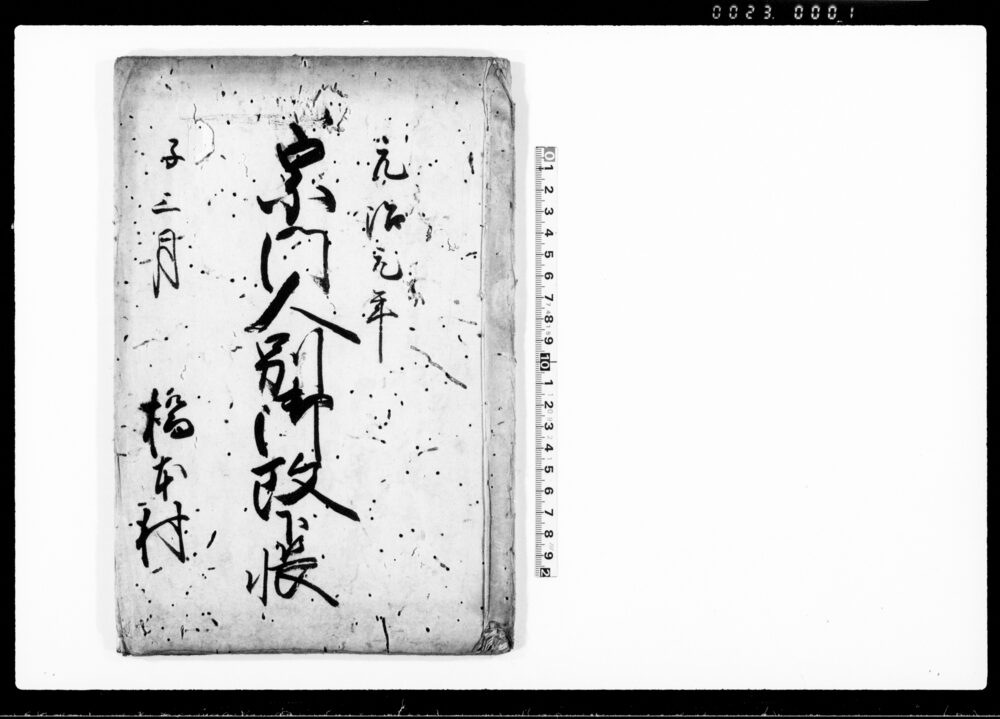 0023 0001
元治元年
宗門人別御改下帳
子三月
橋本村
0 1 2 3 4 5 6 7 8 9 10 1 2 3 4 5 6 7 8 9 2